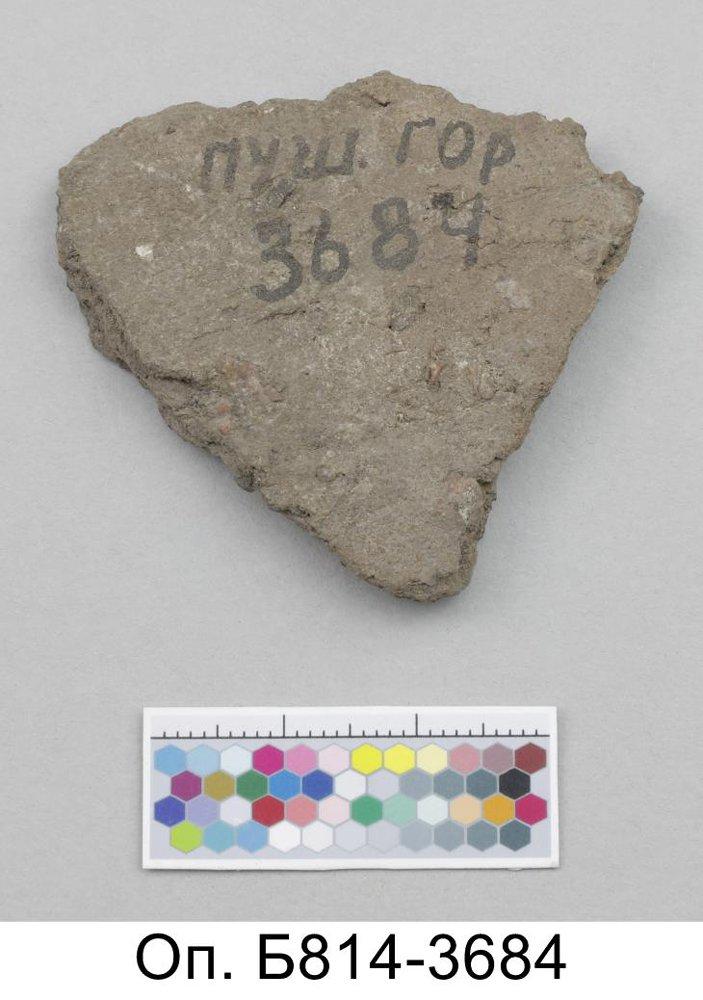 ПУШ. ГОР
3684
Оп. Б814-3684